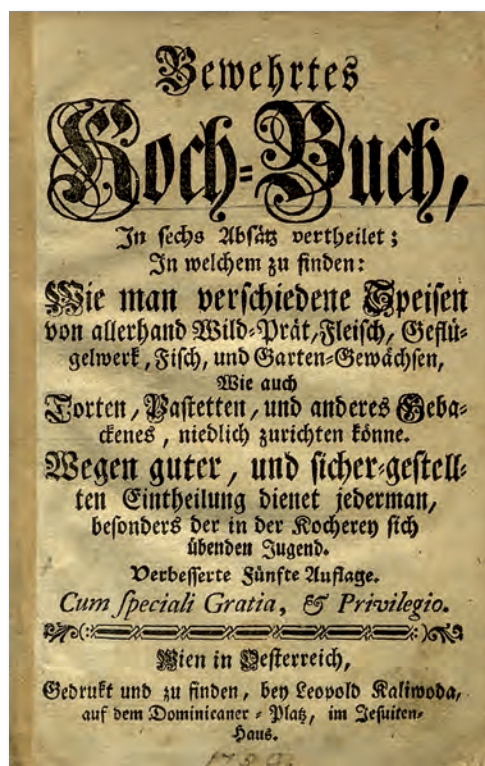 Bewehrtes
Koch-Buch,
In sechs Absätz vertheilet;
In welchem zu finden:
Wie man verschiedene Speisen
von allerhand Wild-Prät, Fleisch, Geflü-
gelwerk, Fisch, und Garten-Gewächsen,
Wie auch
Torten, Pastetten, und anderes Geba-
ckenes, niedlich zurichten könne.
Wegen guter, und sicher-gestell-
ten Eintheilung dienet jederman,
besonders der in der Kocherey sich
übenden Jugend.
Verbesserte Fünfte Auflage.
Cum speciali Gratia, & Privilegio.
Wien in Oesterreich,
Gedrukt und zu finden, bey Leopold Kaliwoda,
auf dem Dominicaner-Platz, im Jesuiten-
Haus.